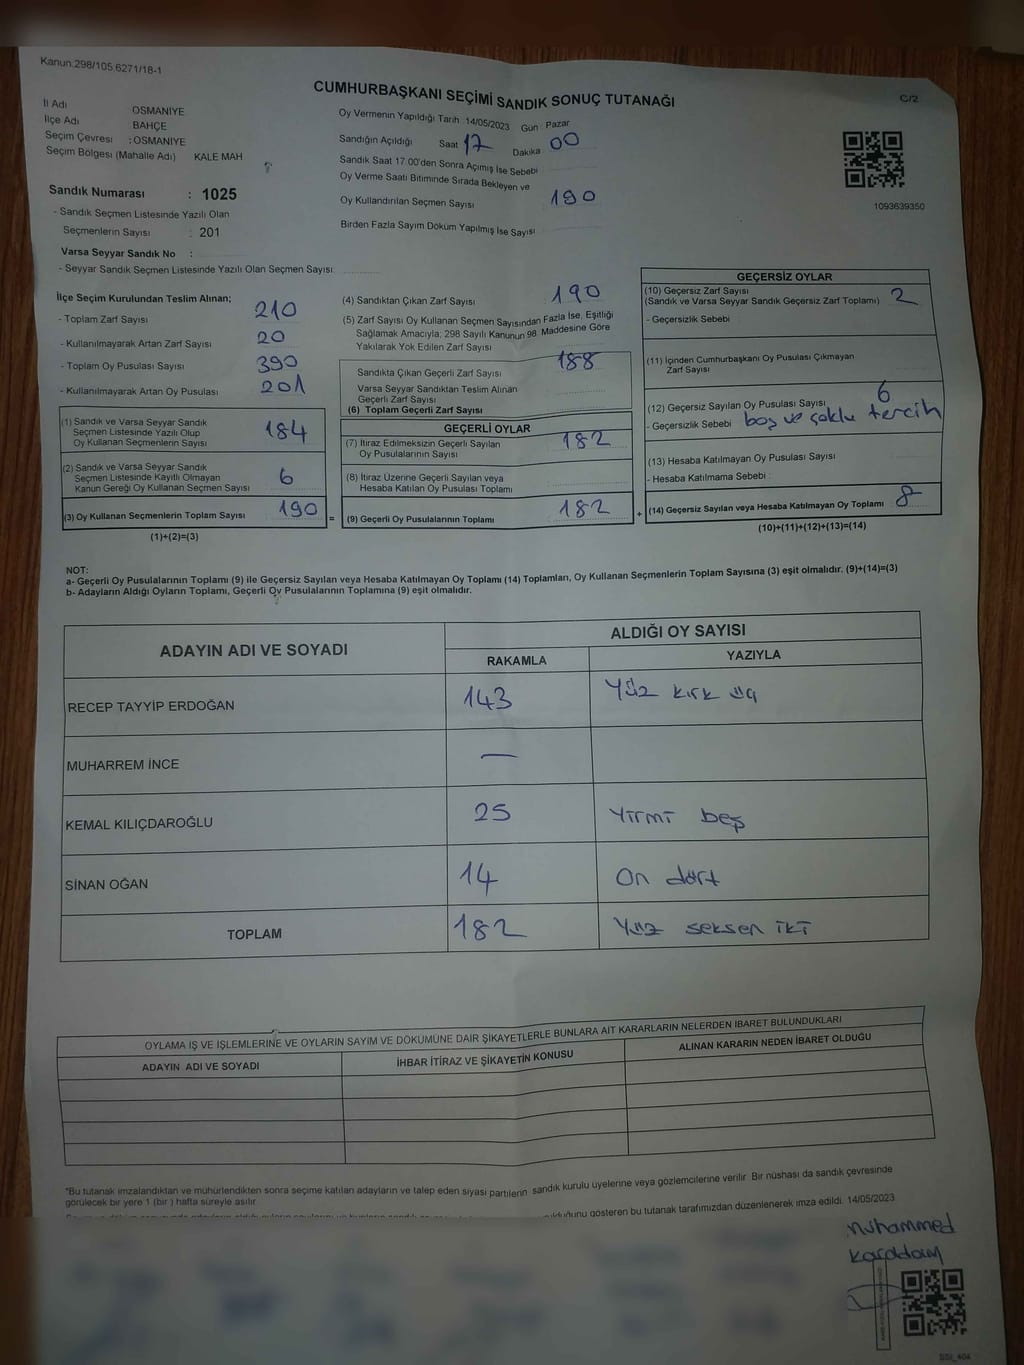 Kanun.298/105,6271/18-1
C/2
CUMHURBAŞKANI SEÇİMİ SANDIK SONUÇ TUTANAĞI
İl Adı OSMANİYE
İlçe Adı BAHÇE
Seçim Çevresi : OSMANİYE
Seçim Bölgesi (Mahalle Adı) KALE MAH
Sandık Numarası : 1025
- Sandık Seçmen Listesinde Yazılı Olan
Seçmenlerin Sayısı : 201
Varsa Seyyar Sandık No :
- Seyyar Sandık Seçmen Listesinde Yazılı Olan Seçmen Sayısı
Oy Vermenin Yapıldığı Tarih 14/05/2023 Gün : Pazar
Sandığın Açıldığı Saat 17 Dakika 00
Sandık Saat 17.00'den Sonra Açılmış İse Sebebi
Oy Verme Saati Bitiminde Sırada Bekleyen ve
Oy Kullandırılan Seçmen Sayısı 190
Birden Fazla Sayım Döküm Yapılmış İse Sayısı
1093639350
İlçe Seçim Kurulundan Teslim Alınan;
- Toplam Zarf Sayısı 210
- Kullanılmayarak Artan Zarf Sayısı 20
- Toplam Oy Pusulası Sayısı 390
- Kullanılmayarak Artan Oy Pusulası 201
(1) Sandık ve Varsa Seyyar Sandık
Seçmen Listesinde Yazılı Olup
Oy Kullanan Seçmenlerin Sayısı 184
(2) Sandık ve Varsa Seyyar Sandık
Seçmen Listesinde Kayıtlı Olmayan
Kanun Gereği Oy Kullanan Seçmen Sayısı 6
(3) Oy Kullanan Seçmenlerin Toplam Sayısı 190 =
(1)+(2)=(3)
(4) Sandıktan Çıkan Zarf Sayısı 190
(5) Zarf Sayısı Oy Kullanan Seçmen Sayısından Fazla İse, Eşitliği
Sağlamak Amacıyla; 298 Sayılı Kanunun 98. Maddesine Göre
Yakılarak Yok Edilen Zarf Sayısı
Sandıkta Çıkan Geçerli Zarf Sayısı 188
Varsa Seyyar Sandıktan Teslim Alınan
Geçerli Zarf Sayısı
(6) Toplam Geçerli Zarf Sayısı
GEÇERLİ OYLAR
(7) İtiraz Edilmeksizin Geçerli Sayılan
Oy Pusulalarının Sayısı 182
(8) İtiraz Üzerine Geçerli Sayılan veya
Hesaba Katılan Oy Pusulası Toplamı
(9) Geçerli Oy Pusulalarının Toplamı 182 +
GEÇERSİZ OYLAR
(10) Geçersiz Zarf Sayısı
(Sandık ve Varsa Seyyar Sandık Geçersiz Zarf Toplamı) 2
- Geçersizlik Sebebi
(11) İçinden Cumhurbaşkanı Oy Pusulası Çıkmayan
Zarf Sayısı
(12) Geçersiz Sayılan Oy Pusulası Sayısı 6
- Geçersizlik Sebebi boş ve çoklu tercih
(13) Hesaba Katılmayan Oy Pusulası Sayısı
- Hesaba Katılmama Sebebi
(14) Geçersiz Sayılan veya Hesaba Katılmayan Oy Toplamı 8
(10)+(11)+(12)+(13)=(14)
NOT:
a- Geçerli Oy Pusulalarının Toplamı (9) ile Geçersiz Sayılan veya Hesaba Katılmayan Oy Toplamı (14) Toplamları, Oy Kullanan Seçmenlerin Toplam Sayısına (3) eşit olmalıdır. (9)+(14)=(3)
b- Adayların Aldığı Oyların Toplamı, Geçerli Oy Pusulalarının Toplamına (9) eşit olmalıdır.
ADAYIN ADI VE SOYADI ALDIĞI OY SAYISI
RAKAMLA YAZIYLA
RECEP TAYYİP ERDOĞAN 143 Yüz kırk üç
MUHARREM İNCE —
KEMAL KILIÇDAROĞLU 25 Yirmi beş
SİNAN OĞAN 14 On dört
TOPLAM 182 Yüz seksen iki
OYLAMA İŞ VE İŞLEMLERİNE VE OYLARIN SAYIM VE DÖKÜMÜNE DAİR ŞİKAYETLERLE BUNLARA AİT KARARLARIN NELERDEN İBARET BULUNDUKLARI
ADAYIN ADI VE SOYADI İHBAR İTİRAZ VE ŞİKAYETİN KONUSU ALINAN KARARIN NEDEN İBARET OLDUĞU
*Bu tutanak imzalandıktan ve mühürlendikten sonra seçime katılan adayların ve talep eden siyasi partilerin sandık kurulu üyelerine veya gözlemcilerine verilir. Bir nüshası da sandık çevresinde
görülecek bir yere 1 (bir) hafta süreyle asılır.
gösteren bu tutanak tarafımızdan düzenlenerek imza edildi. 14/05/2023
Muhammed